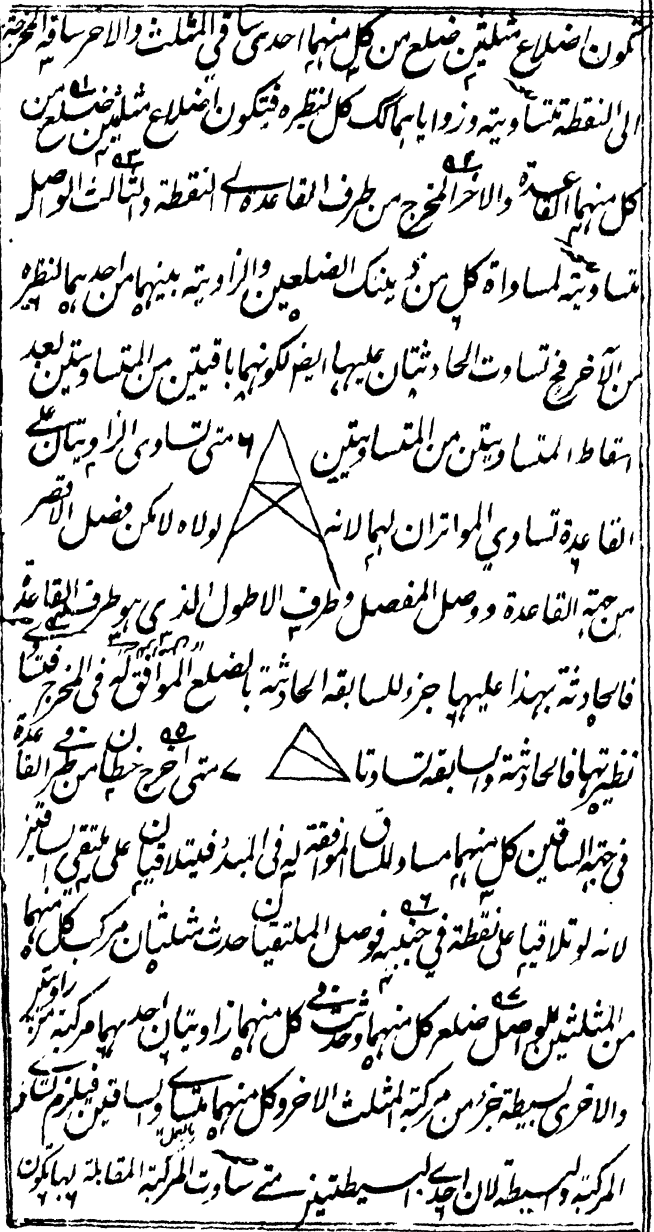 تكون اضلاع مثلثين ضلع من كل منهما احدى ساقي المثلث والاخر ساقه المخرجة
الى النقطة متساوية وزواياهما كك كل لنظيره فيكون اضلاع مثلثين ضلع من
كل منهما القاعدة والاخر المخرج من طرف القاعدة الى النقطة والثالث الواصل
متساوية لمساواة كل من ذينك الضلعين والزاوية بينهما من احديهما لنظيره
من الآخر فح تساوت الحادثتان عليها ايضا لكونهما باقيتين من المتساويتين بعد
اسقاط المتساويتين من المتساويتين ۶ متى تساوى الزاويتان على
القاعدة تساوي الموتران لهما لانه لولاه لامكن فصل الاقصر
من جهة القاعدة ووصل المفصل وطرف الاطول الذى هو طرف القاعدة
فالحادثة بهذا عليها جزء للسابقة الحادثة بالضلع الموافق له فى المخرج
نظيرتها فالحادثة والسابقة تساوتا ۷ متى اخرج خطان من طرفى القاعدة
فى جهة الساقين كل منهما مساو للساق الموافقة له فى المبدء فيتلاقيان على ملتقى الساقين
لانه لو تلاقيا على نقطة فى جنبيه فوصل الملتقيان حدث مثلثان مركب كل منهما
من المثلثين للواصل ضلع كل منهما وحدثت فى كل منهما زاويتان احديهما مركبة من زاويتين
والاخرى بسيطة جزء من مركبة المثلث الاخر وكل منهما متساوى الساقين فيلزم تساوى
المركبة والبسيطة لان احدى البسيطتين متى ساوت المركبة المقابلة لها تكون